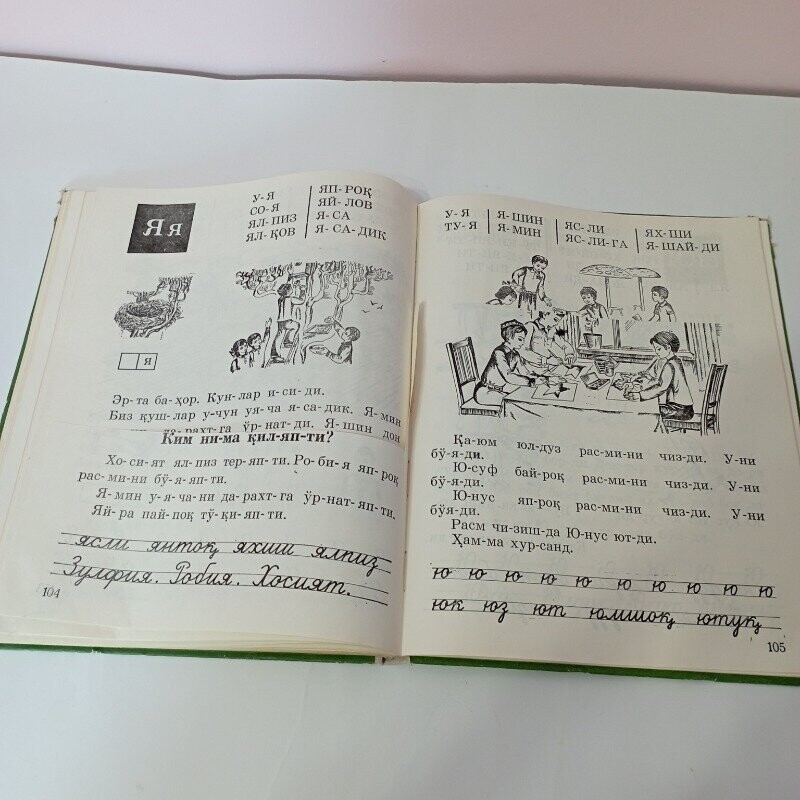 Я я
У-Я
СО-Я
ЯЛ-ПИЗ
ЯЛ-ҚОВ
ЯП-РОҚ
ЯЙ-ЛОВ
Я-СА
Я-СА-ДИК
я
Эр-та ба-ҳор. Кун-лар и-си-ди.
Биз қуш-лар у-чун уя-ча я-са-дик. Я-мин
да-рахт-га ўр-нат-ди. Я-шин дон
Ким ни-ма қил-яп-ти?
Хо-си-ят ял-пиз тер-яп-ти. Ро-би-я яп-роқ
рас-ми-ни бў-я-яп-ти.
Я-мин у-я-ча-ни да-рахт-га ўр-нат-яп-ти.
Яй-ра пай-поқ тў-қи-яп-ти.
ясли янтоқ яхши ялпиз
Зулфия. Робия. Хосият.
104
У-Я
ТУ-Я
Я-ШИН
Я-МИН
ЯС-ЛИ
ЯС-ЛИ-ГА
ЯХ-ШИ
Я-ШАЙ-ДИ
Қа-юм юл-дуз рас-ми-ни чиз-ди. У-ни
бў-я-ди.
Ю-суф бай-роқ рас-ми-ни чиз-ди. У-ни
бў-я-ди.
Ю-нус яп-роқ рас-ми-ни чиз-ди. У-ни
бўя-ди.
Расм чи-зиш-да Ю-нус ют-ди.
Ҳам-ма хур-санд.
ю ю ю ю ю ю ю ю ю ю
юк юз ют юмшоқ ютуқ
105